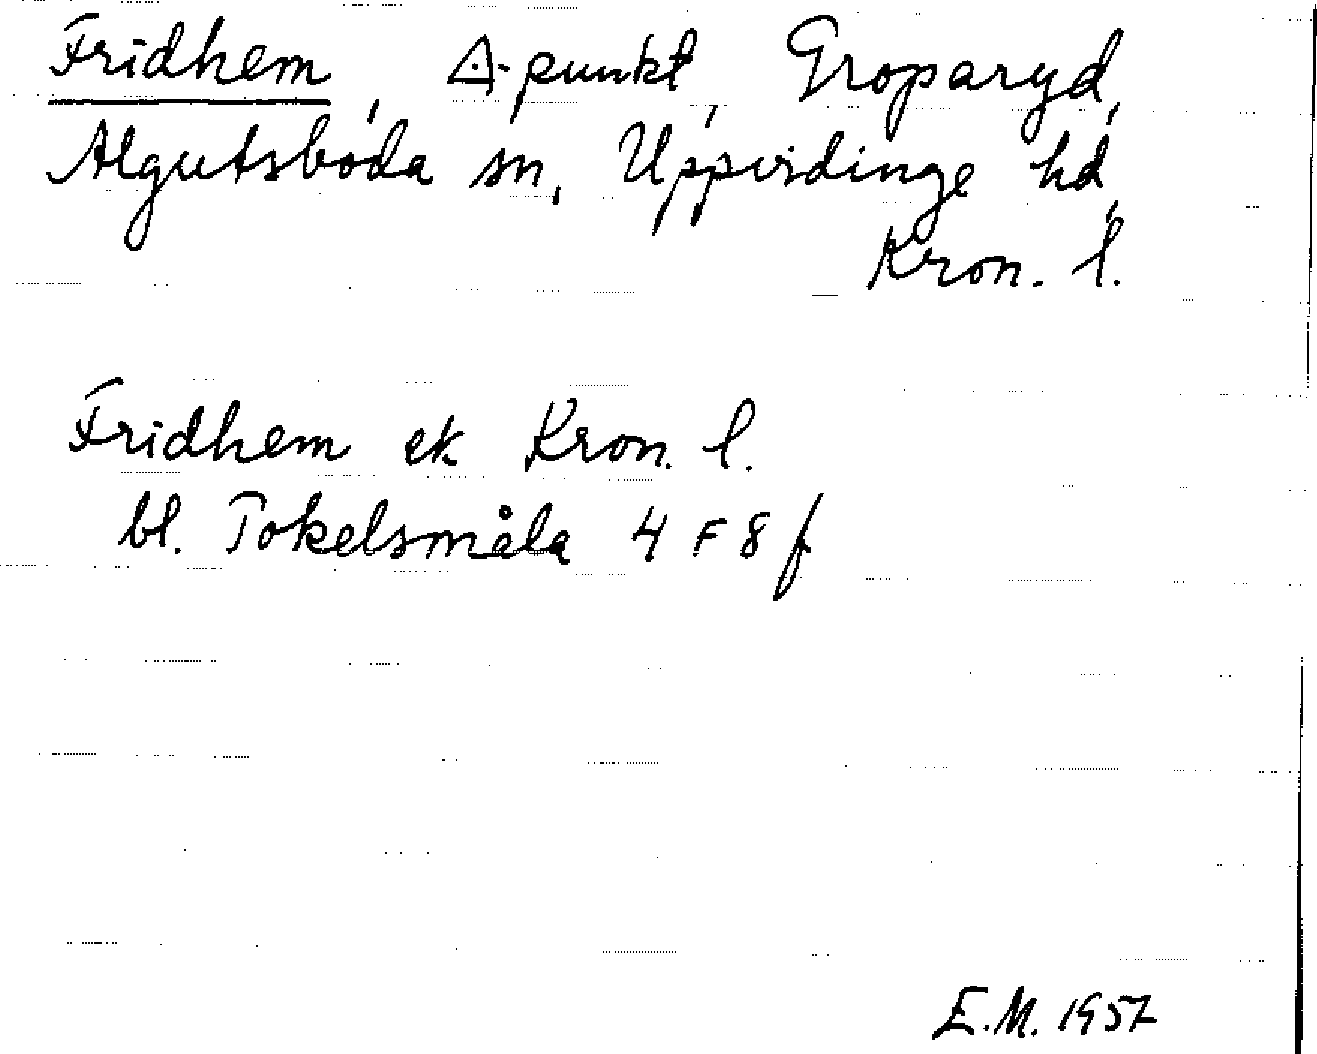 Fridhem, △-punkt, Groparyd,
Algutsboda sn, Uppvidinge hd,
Kron. l.
Fridhem ek Kron. l.
bl. Tokelsmåla 4 F 8 f
E.M. 1957